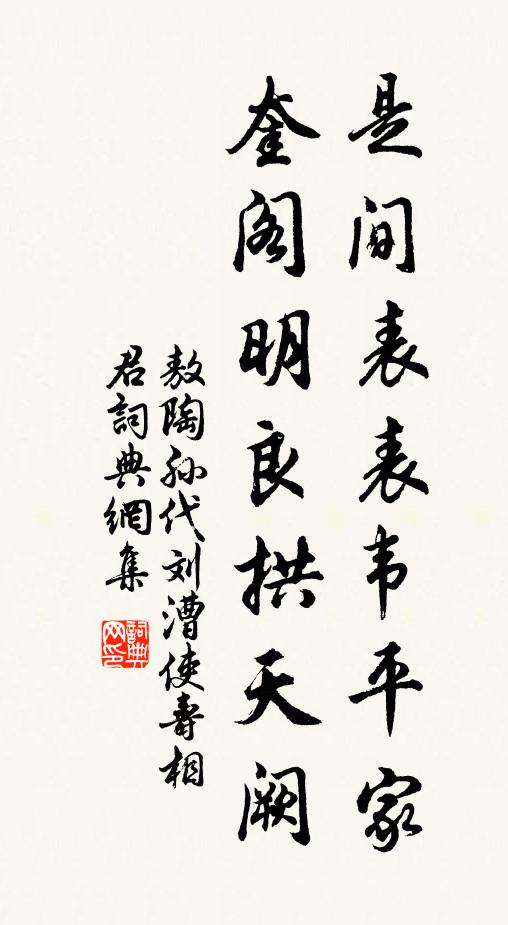 是间表表韦平家
奎阁明良拱天阙
敖陶孙代刘漕使寿相
君詞典網集
詞典
网印